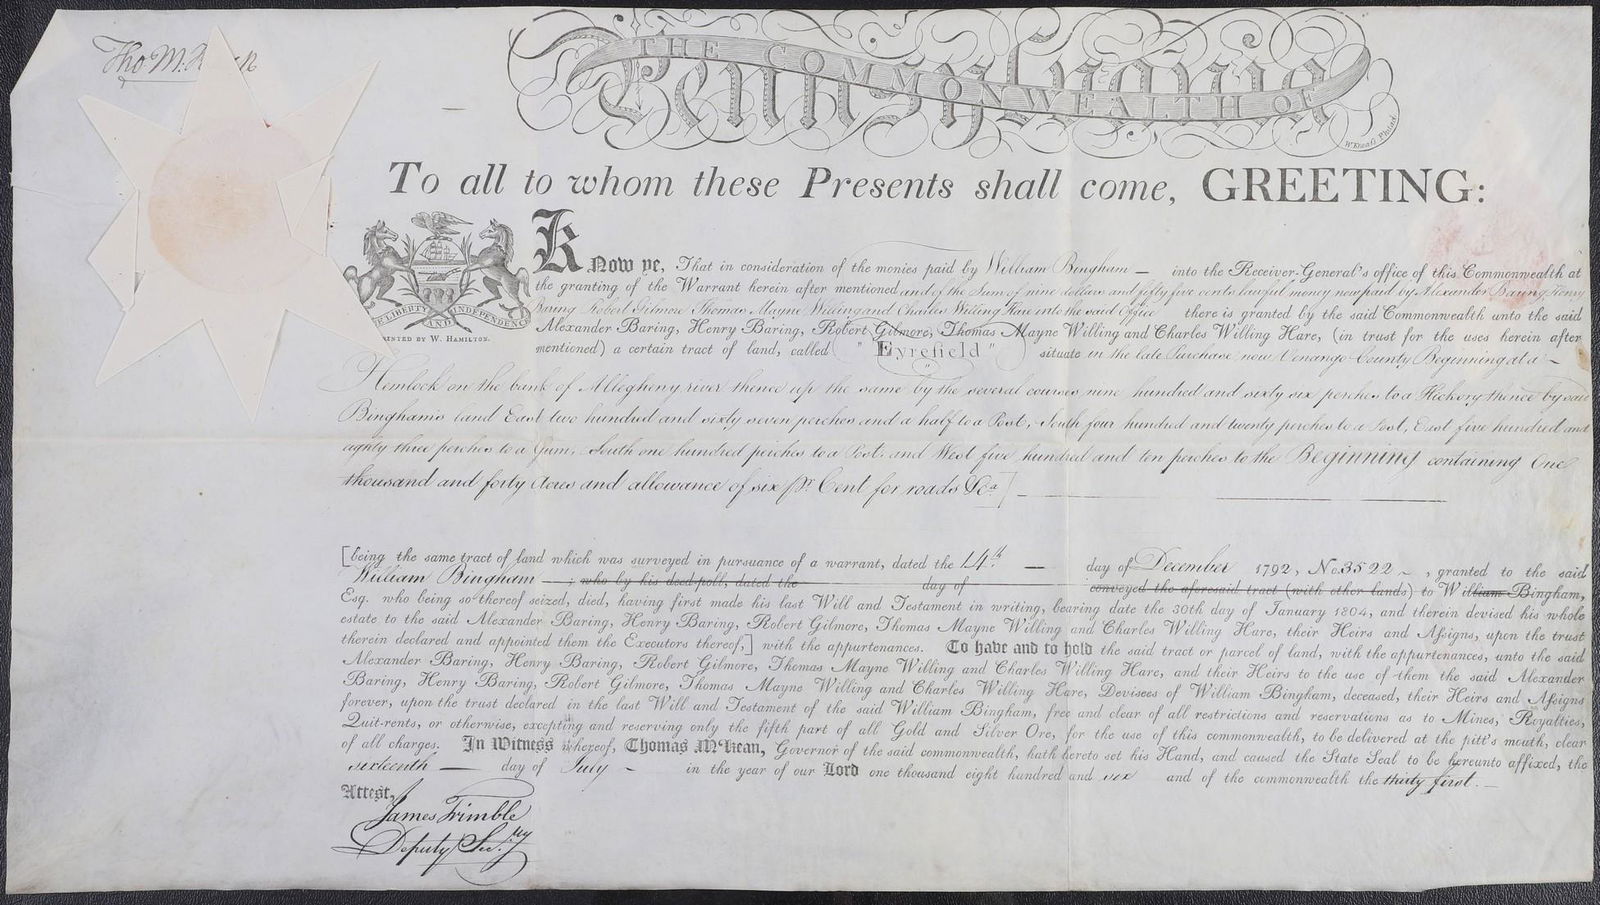 Tho M:
THE COMMONWEALTH OF
Pennsylvania
W Kneaſs Philad.
To all to whom these Presents shall come, GREETING:
Know ye, That in consideration of the monies paid by William Bingham — into the Receiver-General's office of this Commonwealth at
the granting of the Warrant herein after mentioned and of the Sum of nine dollars and fifty five cents lawful money now paid by Alexander Baring Henry
Baring Robert Gilmore Thomas Mayne Willing and Charles Willing Hare into the said Office there is granted by the said Commonwealth unto the said
Alexander Baring, Henry Baring, Robert Gilmore, Thomas Mayne Willing and Charles Willing Hare, (in trust for the uses herein after
mentioned) a certain tract of land, called "Eyrefield" situate in the late Purchase, now Venango County, Beginning at a —
LIBERTY AND INDEPENDENCE
PRINTED BY W. HAMILTON.
Hemlock on the bank of Allegheny river thence up the same by the several courses nine hundred and sixty six perches to a Hickory thence by said
Bingham's land East two hundred and sixty seven perches and a half to a Post, South four hundred and twenty perches to a Post, East five hundred and
eighty three perches to a Gum, South one hundred perches to a Post, and West five hundred and ten perches to the Beginning containing One
thousand and forty Acres and allowance of six pr. Cent for roads &ca]
[being the same tract of land which was surveyed in pursuance of a warrant, dated the 14th — day of December 1792, No. 3522 – , granted to the said
William Bingham — ; who by his deed poll, dated the day of conveyed the aforesaid tract (with other lands) to William Bingham,
Esq. who being so thereof seized, died, having first made his last Will and Testament in writing, bearing date the 30th day of January 1804, and therein devised his whole
estate to the said Alexander Baring, Henry Baring, Robert Gilmore, Thomas Mayne Willing and Charles Willing Hare, their Heirs and Aſsigns, upon the trust
therein declared and appointed them the Executors thereof,] with the appurtenances. To have and to hold the said tract or parcel of land, with the appurtenances, unto the said
Alexander Baring, Henry Baring, Robert Gilmore, Thomas Mayne Willing and Charles Willing Hare, and their Heirs to the use of them the said Alexander
Baring, Henry Baring, Robert Gilmore, Thomas Mayne Willing and Charles Willing Hare, Devisees of William Bingham, deceased, their Heirs and Aſsigns
forever, upon the trust declared in the last Will and Testament of the said William Bingham, free and clear of all restrictions and reservations as to Mines, Royalties,
Quit-rents, or otherwise, excepting and reserving only the fifth part of all Gold and Silver Ore, for the use of this commonwealth, to be delivered at the pitt's mouth, clear
of all charges. In Witness whereof, Thomas M'Kean, Governor of the said commonwealth, hath hereto set his Hand, and caused the State Seal to be hereunto affixed, the
sixteenth — day of July – in the year of our Lord one thousand eight hundred and six and of the commonwealth the thirty first. —
Attest,
James Trimble
Deputy Secry